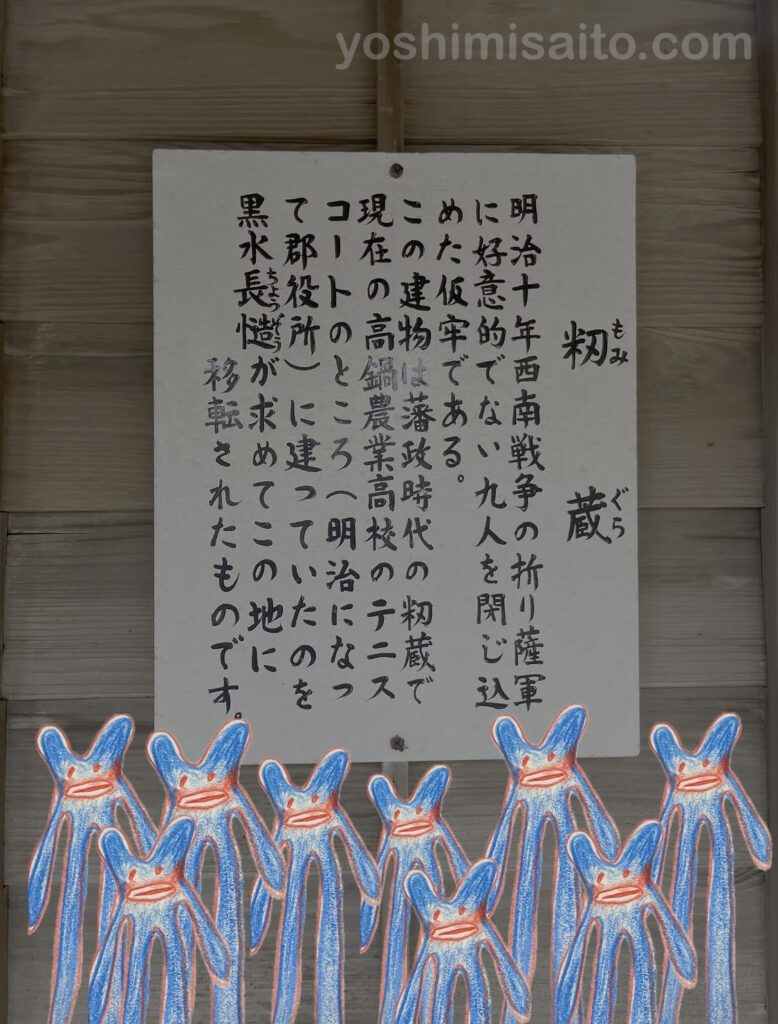 yoshimisaito.com
籾蔵
もみ ぐら
明治十年西南戦争の折り薩軍
に好意的でない九人を閉じ込
めた仮牢である。
この建物は藩政時代の籾蔵で
現在の高鍋農業高校のテニス
コートのところ(明治になっ
て郡役所)に建っていたのを
黒水長慥が求めてこの地に
ちょうぞう
移転されたものです。